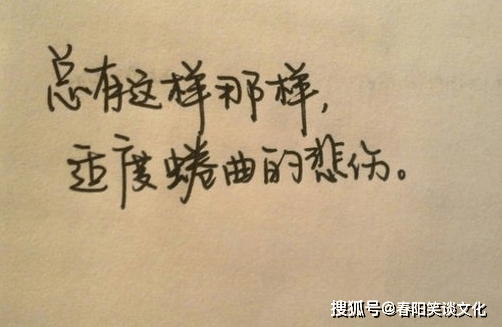 总有这样那样，
适度蜷曲的悲伤。
搜狐号@春阳笑谈文化